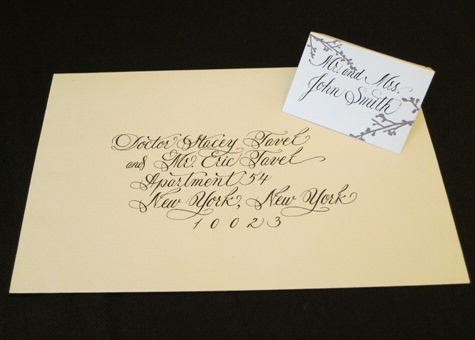 Mr. and Mrs.
John Smith
Doctor Stacey Tavel
and Mr. Eric Tavel
Apartment 54
New York, New York
10023